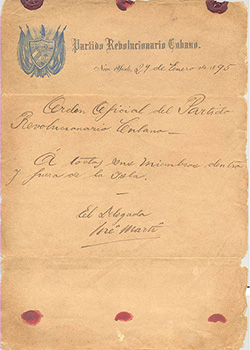 Partido Revolucionario Cubano.
New York, 29 de Enero de 1895
Orden Oficial del Partido
Revolucionario Cubano—
Á todos sus miembros dentro
y fuera de la Isla.
El Delegado
José Martí